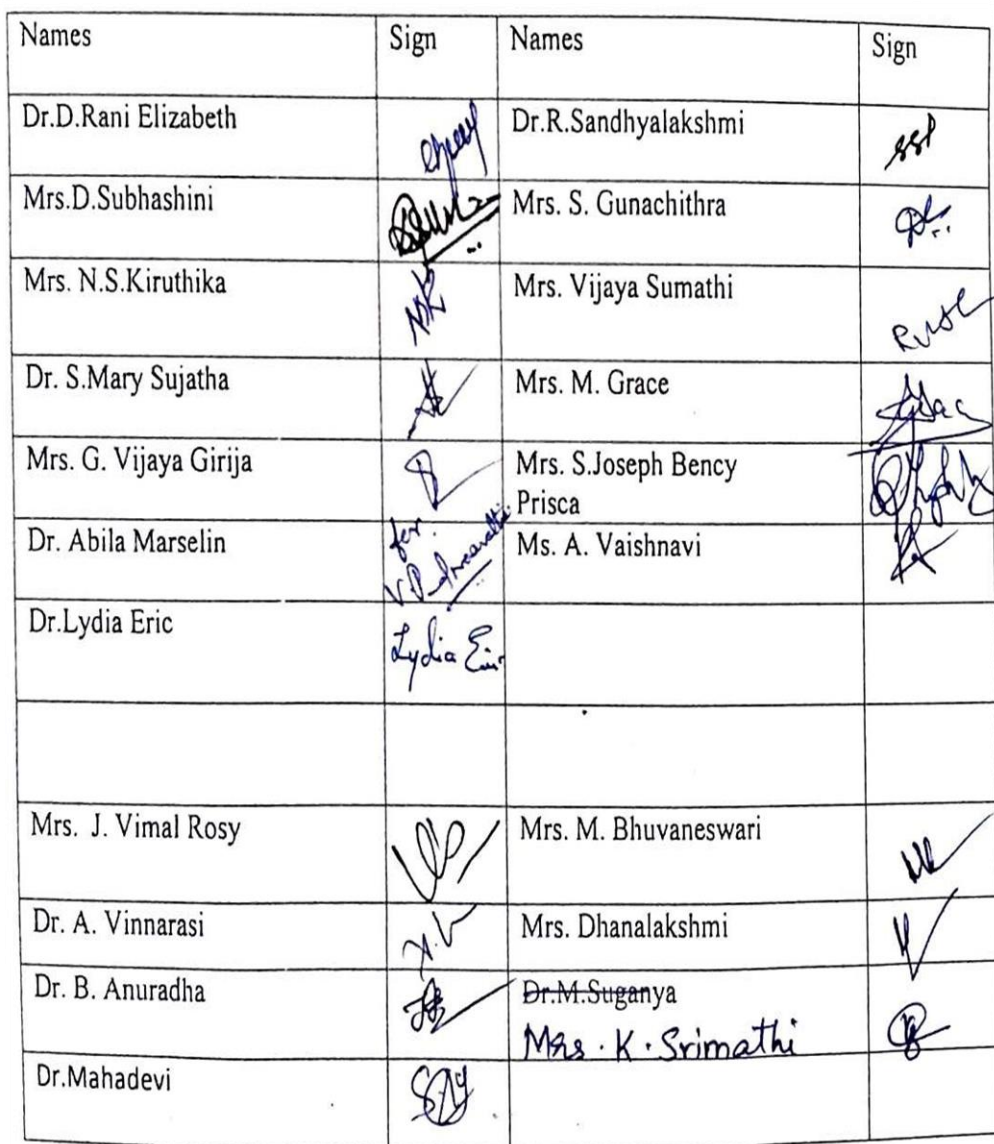 Names Sign Names Sign
Dr.D.Rani Elizabeth Dr.R.Sandhyalakshmi ssl
Mrs.D.Subhashini Mrs. S. Gunachithra
Mrs. N.S.Kiruthika NSK Mrs. Vijaya Sumathi
Dr. S.Mary Sujatha Mrs. M. Grace
Mrs. G. Vijaya Girija Mrs. S.Joseph Bency
Prisca
Dr. Abila Marselin for. Ms. A. Vaishnavi
Dr.Lydia Eric Lydia Eric
Mrs. J. Vimal Rosy Mrs. M. Bhuvaneswari
Dr. A. Vinnarasi Mrs. Dhanalakshmi
Dr. B. Anuradha Dr.M.Suganya
Mrs. K. Srimathi
Dr.Mahadevi